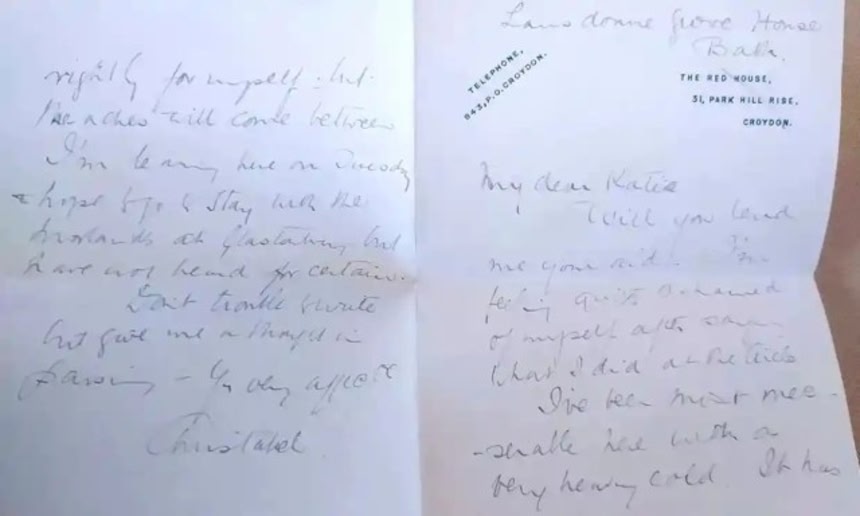 Lansdowne Grove House
Bath.
TELEPHONE,
843, P.O. CROYDON.
THE RED HOUSE,
51, PARK HILL RISE,
CROYDON.
My dear Katie
Will you lend
me your aid. I'm
feeling quite ashamed
of myself after saying
what I did at the
I've been most mee-
-serable here with a
very heavy cold. It has
rightly for myself - but
the aches will come between
I'm leaving here on Tuesday
& hope to go to stay with the
at Glastonbury but
have not heard for certain.
Don't trouble to write
but give me a thought in
passing - Yr very affec te
Christabel